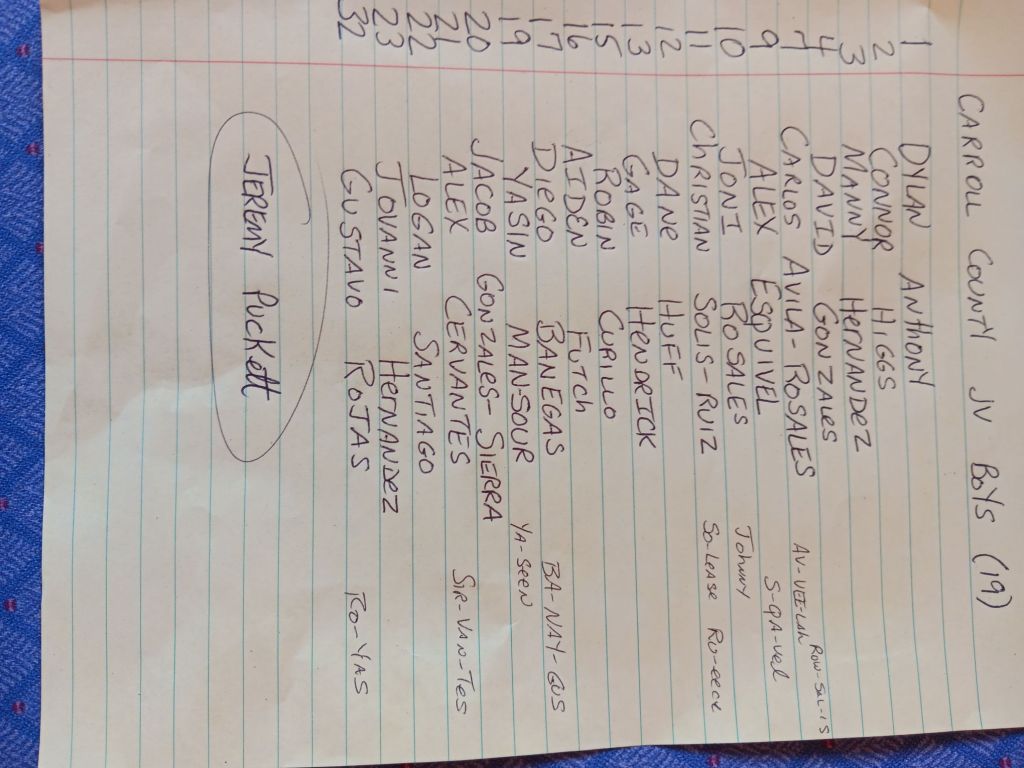 CARROLL COUNTY JV BOYS (19)
1 DYLAN ANTHONY
2 CONNOR HIGGS
3 MANNY HERNANDEZ
4 DAVID GONZALES
7 CARLOS AVILA-ROSALES AV-VEE-LAH ROW-SAL-IS
9 ALEX ESQUIVEL S-QA-VEL
10 JONI ROSALES JOHNNY
11 CHRISTIAN SOLIS-RUIZ SO-LEASE
12 DANE HUFF
13 GAGE HENDRICK
15 ROBIN CURILLO
16 AIDEN FUTCH
17 DIEGO BANEGAS BA-NAY-GUS
19 YASIN MANSOUR YA-SEEN
20 JACOB GONZALES-SIERRA
21 ALEX CERVANTES SIR-VAN-TES
22 LOGAN SANTIAGO
23 JOVANNI HERNANDEZ
32 GUSTAVO ROJAS RO-YAS
JEREMY PUCKETT